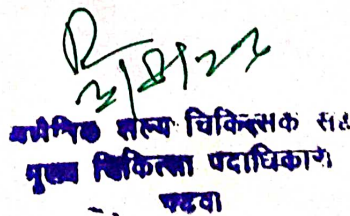 असैनिक शल्य चिकित्सक सह
मुख्य चिकित्सा पदाधिकारी
गढवा